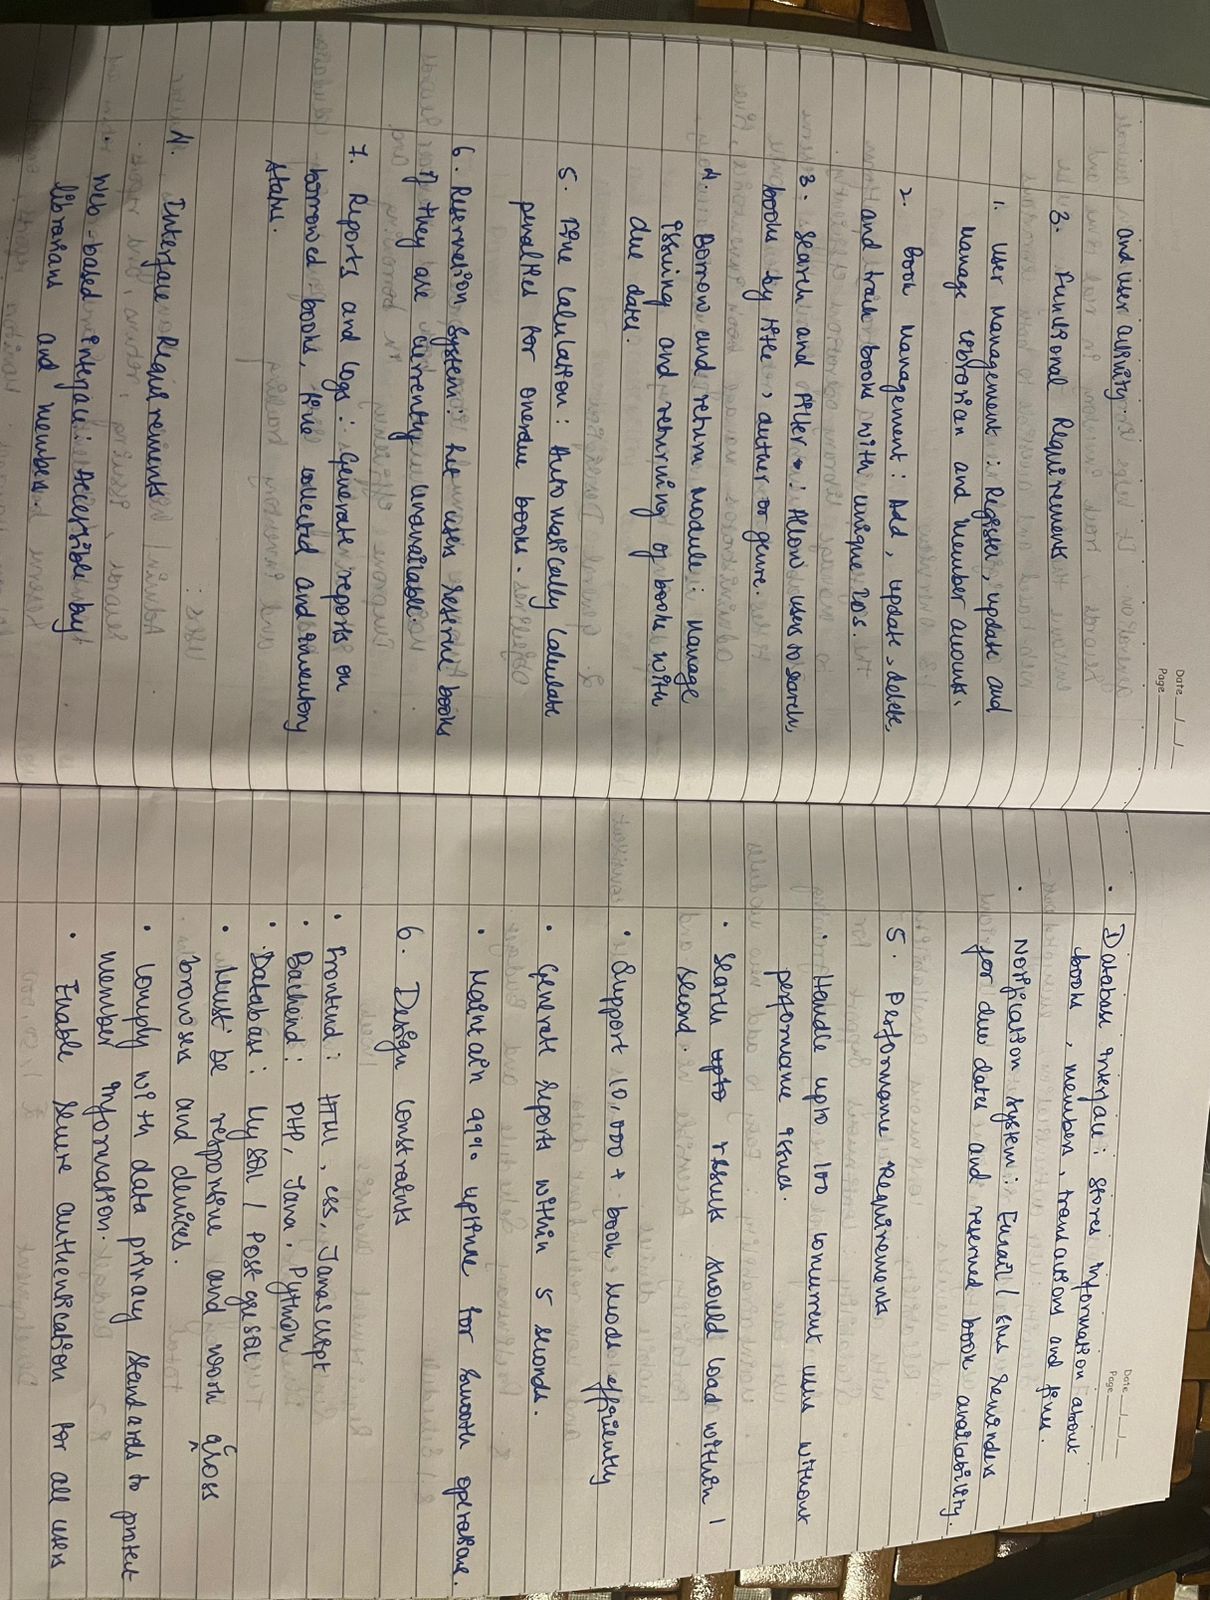 Date __/__/__
Page ____
and user activity.
3. Functional Requirements
1. User Management : Register, update and
manage librarian and member accounts.
2. Book Management : Add, update, delete,
and track books with unique IDs.
3. Search and Filter : Allow users to search
books by title, author or genre.
4. Borrow and return module : Manage
issuing and returning of books with
due dates.
5. Fine Calculation : Automatically calculate
penalties for overdue books.
6. Reservation System : Let users reserve books
if they are currently unavailable.
7. Reports and Logs : Generate reports on
borrowed books, fine collected and inventory
status.
4. Interface Requirements
• Web-based interface : Accessible by
librarians and members.
Date __/__/__
Page ____
• Database interface : stores information about
books, members, transactions and fines.
• Notification system : Email / SMS reminders
for due dates and reserved book availability.
5. Performance Requirements
• Handle upto 100 concurrent users without
performance issues.
• Search results should load within 1
second.
• Support 10,000 + book records efficiently
• Generate reports within 5 seconds.
• Maintain 99% uptime for smooth operations.
6. Design Constraints
• Frontend : HTML, CSS, Javascript
• Backend : PHP, Java, Python
• Database : MySQL / PostgreSQL
• Must be responsive and work across
browsers and devices.
• Comply with data privacy standards to protect
member information.
• Enable secure authentication for all users